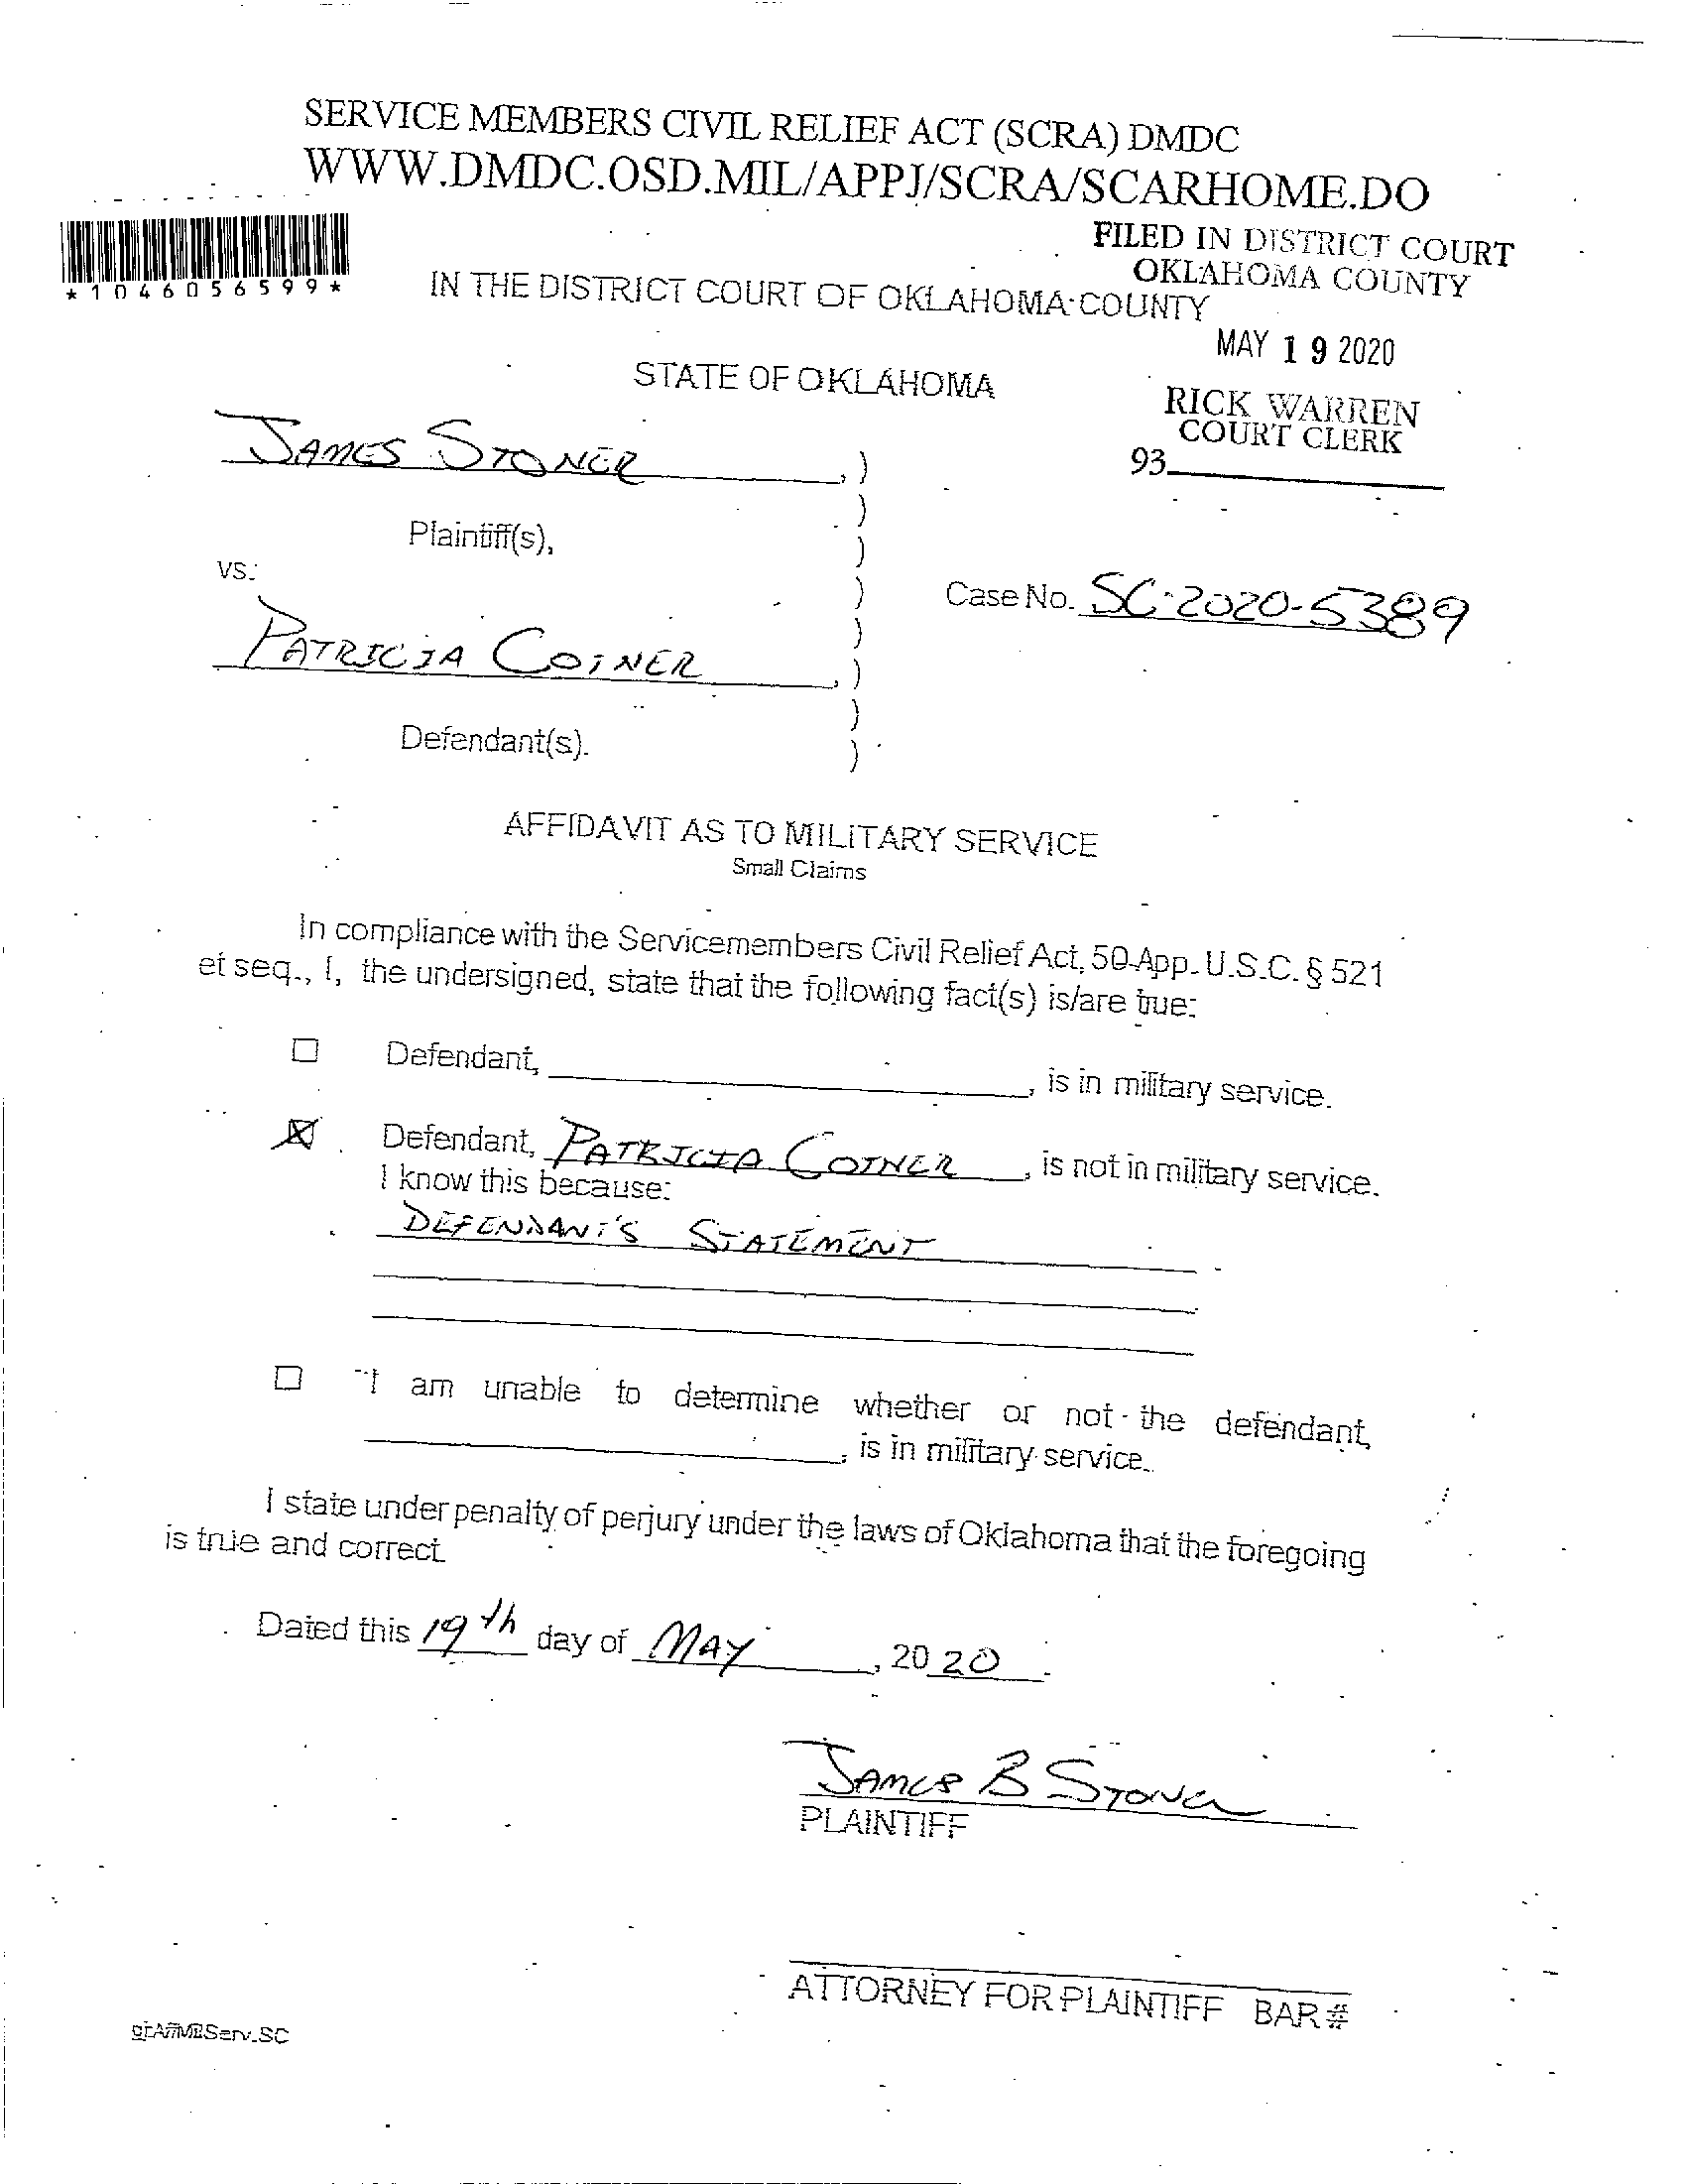 SERVICE MEMBERS CIVIL RELIEF ACT (SCRA) DMDC
WWW.DMDC.OSD.MIL/APPJ/SCRA/SCARHOME.DO
*1046056599*
FILED IN DISTRICT COURT
OKLAHOMA COUNTY
IN THE DISTRICT COURT OF OKLAHOMA COUNTY
MAY 19 2020
STATE OF OKLAHOMA
RICK WARREN
COURT CLERK
93
JAMES STONER, )
Plaintiff(s),
vs.
Case No. SC-2020-5389
PATRICIA COINER, )
Defendant(s).
AFFIDAVIT AS TO MILITARY SERVICE
Small Claims
In compliance with the Servicemembers Civil Relief Act, 50 App. U.S.C. § 521
et seq., I, the undersigned, state that the following fact(s) is/are true:
☐ Defendant, , is in military service.
☒ Defendant, PATRICIA COINER, is not in military service.
I know this because:
DEFENDANT'S STATEMENT
☐ I am unable to determine whether or not the defendant,
, is in military service.
I state under penalty of perjury under the laws of Oklahoma that the foregoing
is true and correct.
Dated this 19th day of MAY, 2020.
JAMES B STONER
PLAINTIFF
ATTORNEY FOR PLAINTIFF BAR #